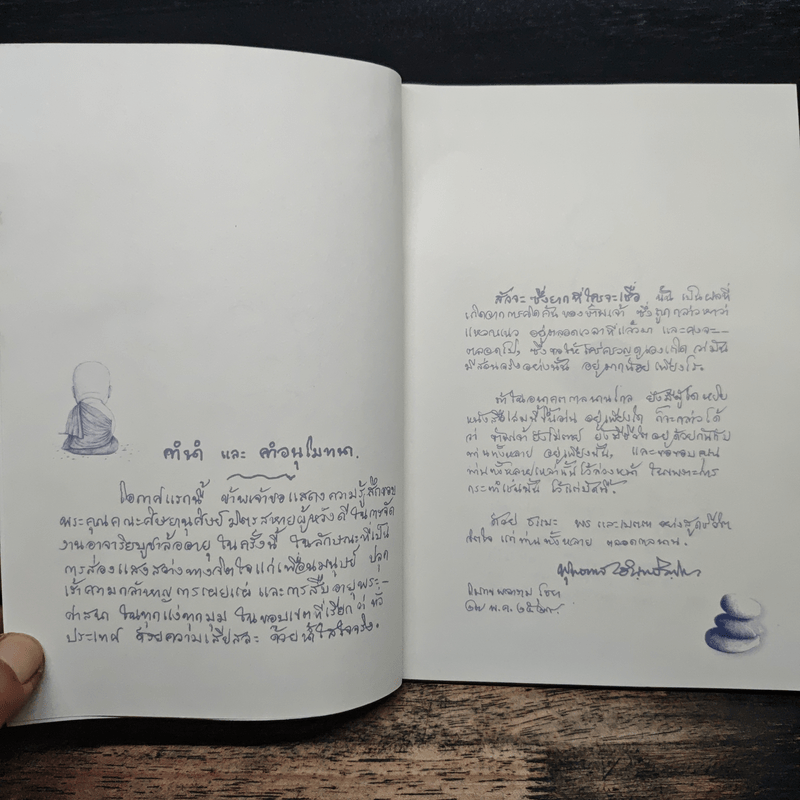 คำนำ และ คำอนุโมทนา.
โอกาสแรกนี้ ข้าพเจ้าขอแสดงความรู้สึกขอบ
พระคุณคณะศิษยานุศิษย์ มิตรสหายผู้หวังดี ในการจัด
งานอาจาริยบูชาล้ออายุ ในครั้งนี้ ในลักษณะที่เป็น
การส่องแสงสว่างทางจิตใจแก่เพื่อนมนุษย์ ปลุก
เร้าความกล้าหาญ การเผยแผ่ และการสืบอายุพระ-
ศาสนา ในทุกแง่ทุกมุม ในขอบเขตที่เรียกว่า ทั่ว
ประเทศ ด้วยความเสียสละ ด้วยน้ำใสใจจริง.
สัจจะ ซึ่งยากที่ใครจะเชื่อ นั้น เป็นผลที่
เกิดจากการคิดค้นของข้าพเจ้า ซึ่งถูกกล่าวหาว่า
แหวกแนว อยู่ตลอดเวลาที่แล้วมา และคงจะ-
ตลอดไป, ซึ่งขอให้ใคร่ครวญดูเองเถิด ว่ามัน
มีส่วนจริงอย่างนั้น อยู่มากน้อยเพียงไร.
ถ้าในอนาคตกาลนานไกล ยังมีผู้ใดหยิบ
หนังสือเล่มนี้ขึ้นอ่าน อยู่เพียงใด ก็จะกล่าวได้
ว่า ข้าพเจ้ายังไม่ตาย ยังมีชีวิตอยู่ด้วยกันกับ
ท่านทั้งหลาย อยู่เพียงนั้น, และขอขอบคุณ
ท่านทั้งหลายเหล่านั้นไว้ล่วงหน้า ในเพราะการ
กระทำเช่นนั้น ไว้แต่บัดนี้.
ด้วย ธรรมะ พร และเมตตา อย่างสูงสุดชีวิต
จิตใจ แด่ท่านทั้งหลาย ตลอดกาลนาน.
พุทธทาส อินทปัญโญ
โมกขพลาราม ไชยา
พ.ค.